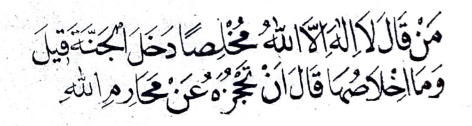 مَنْ قَالَ لَا اِلٰهَ اِلَّا اللّٰهُ مُخْلِصًا دَخَلَ الْجَنَّةَ قِيلَ
وَمَا اِخْلَاصُهَا قَالَ اَنْ تَحْجُزَهُ عَنْ مَحَارِمِ اللّٰهِ